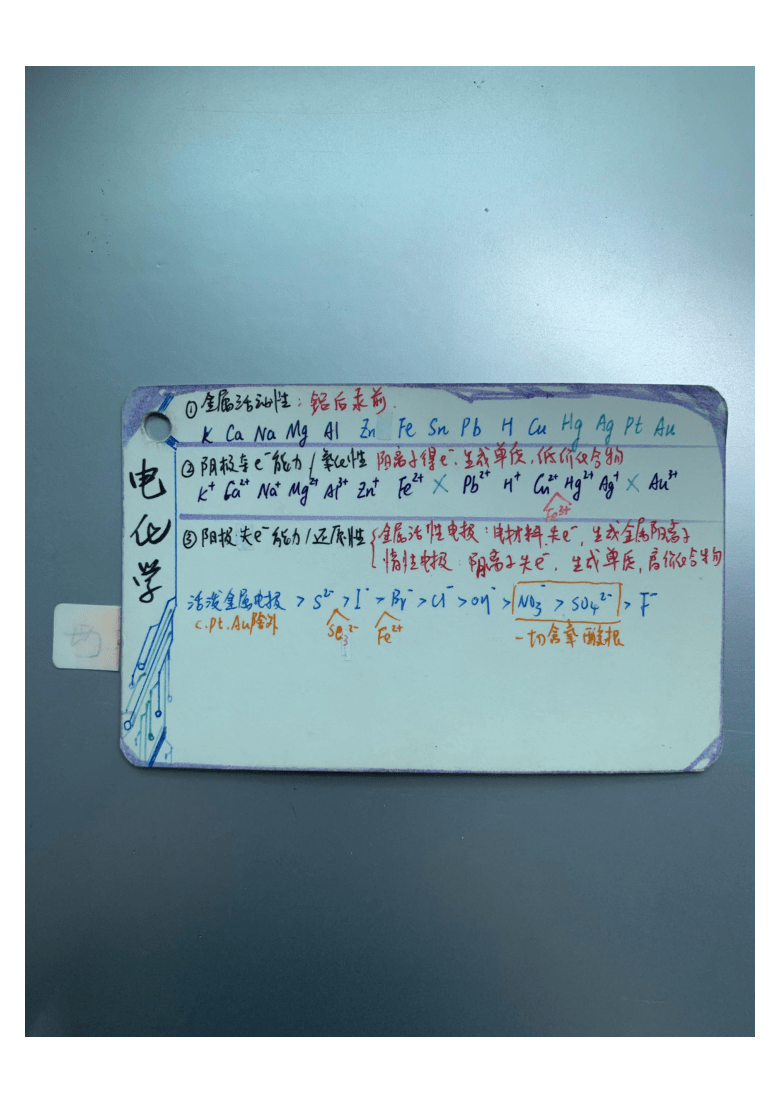 电化学
①金属活动性：铝后汞前.
K Ca Na Mg Al Zn Fe Sn Pb H Cu Hg Ag Pt Au
②阴极夺e⁻能力/氧化性 阳离子得e⁻.生成单质,低价化合物
K⁺ Ca²⁺ Na⁺ Mg²⁺ Al³⁺ Zn⁺ Fe²⁺ × Pb²⁺ H⁺ Cu²⁺ Hg²⁺ Ag⁺ × Au³⁺
Fe³⁺
③阳极失e⁻能力/还原性 { 金属活性电极：电材料失e⁻, 生成金属阳离子
惰性电极：阴离子失e⁻, 生成单质,高价化合物
活泼金属电极 > S²⁻ > I⁻ > Br⁻ > Cl⁻ > OH⁻ > NO₃⁻ > SO₄²⁻ > F⁻
C.Pt.Au除外 SO₃²⁻ Fe²⁺ 一切含氧酸根